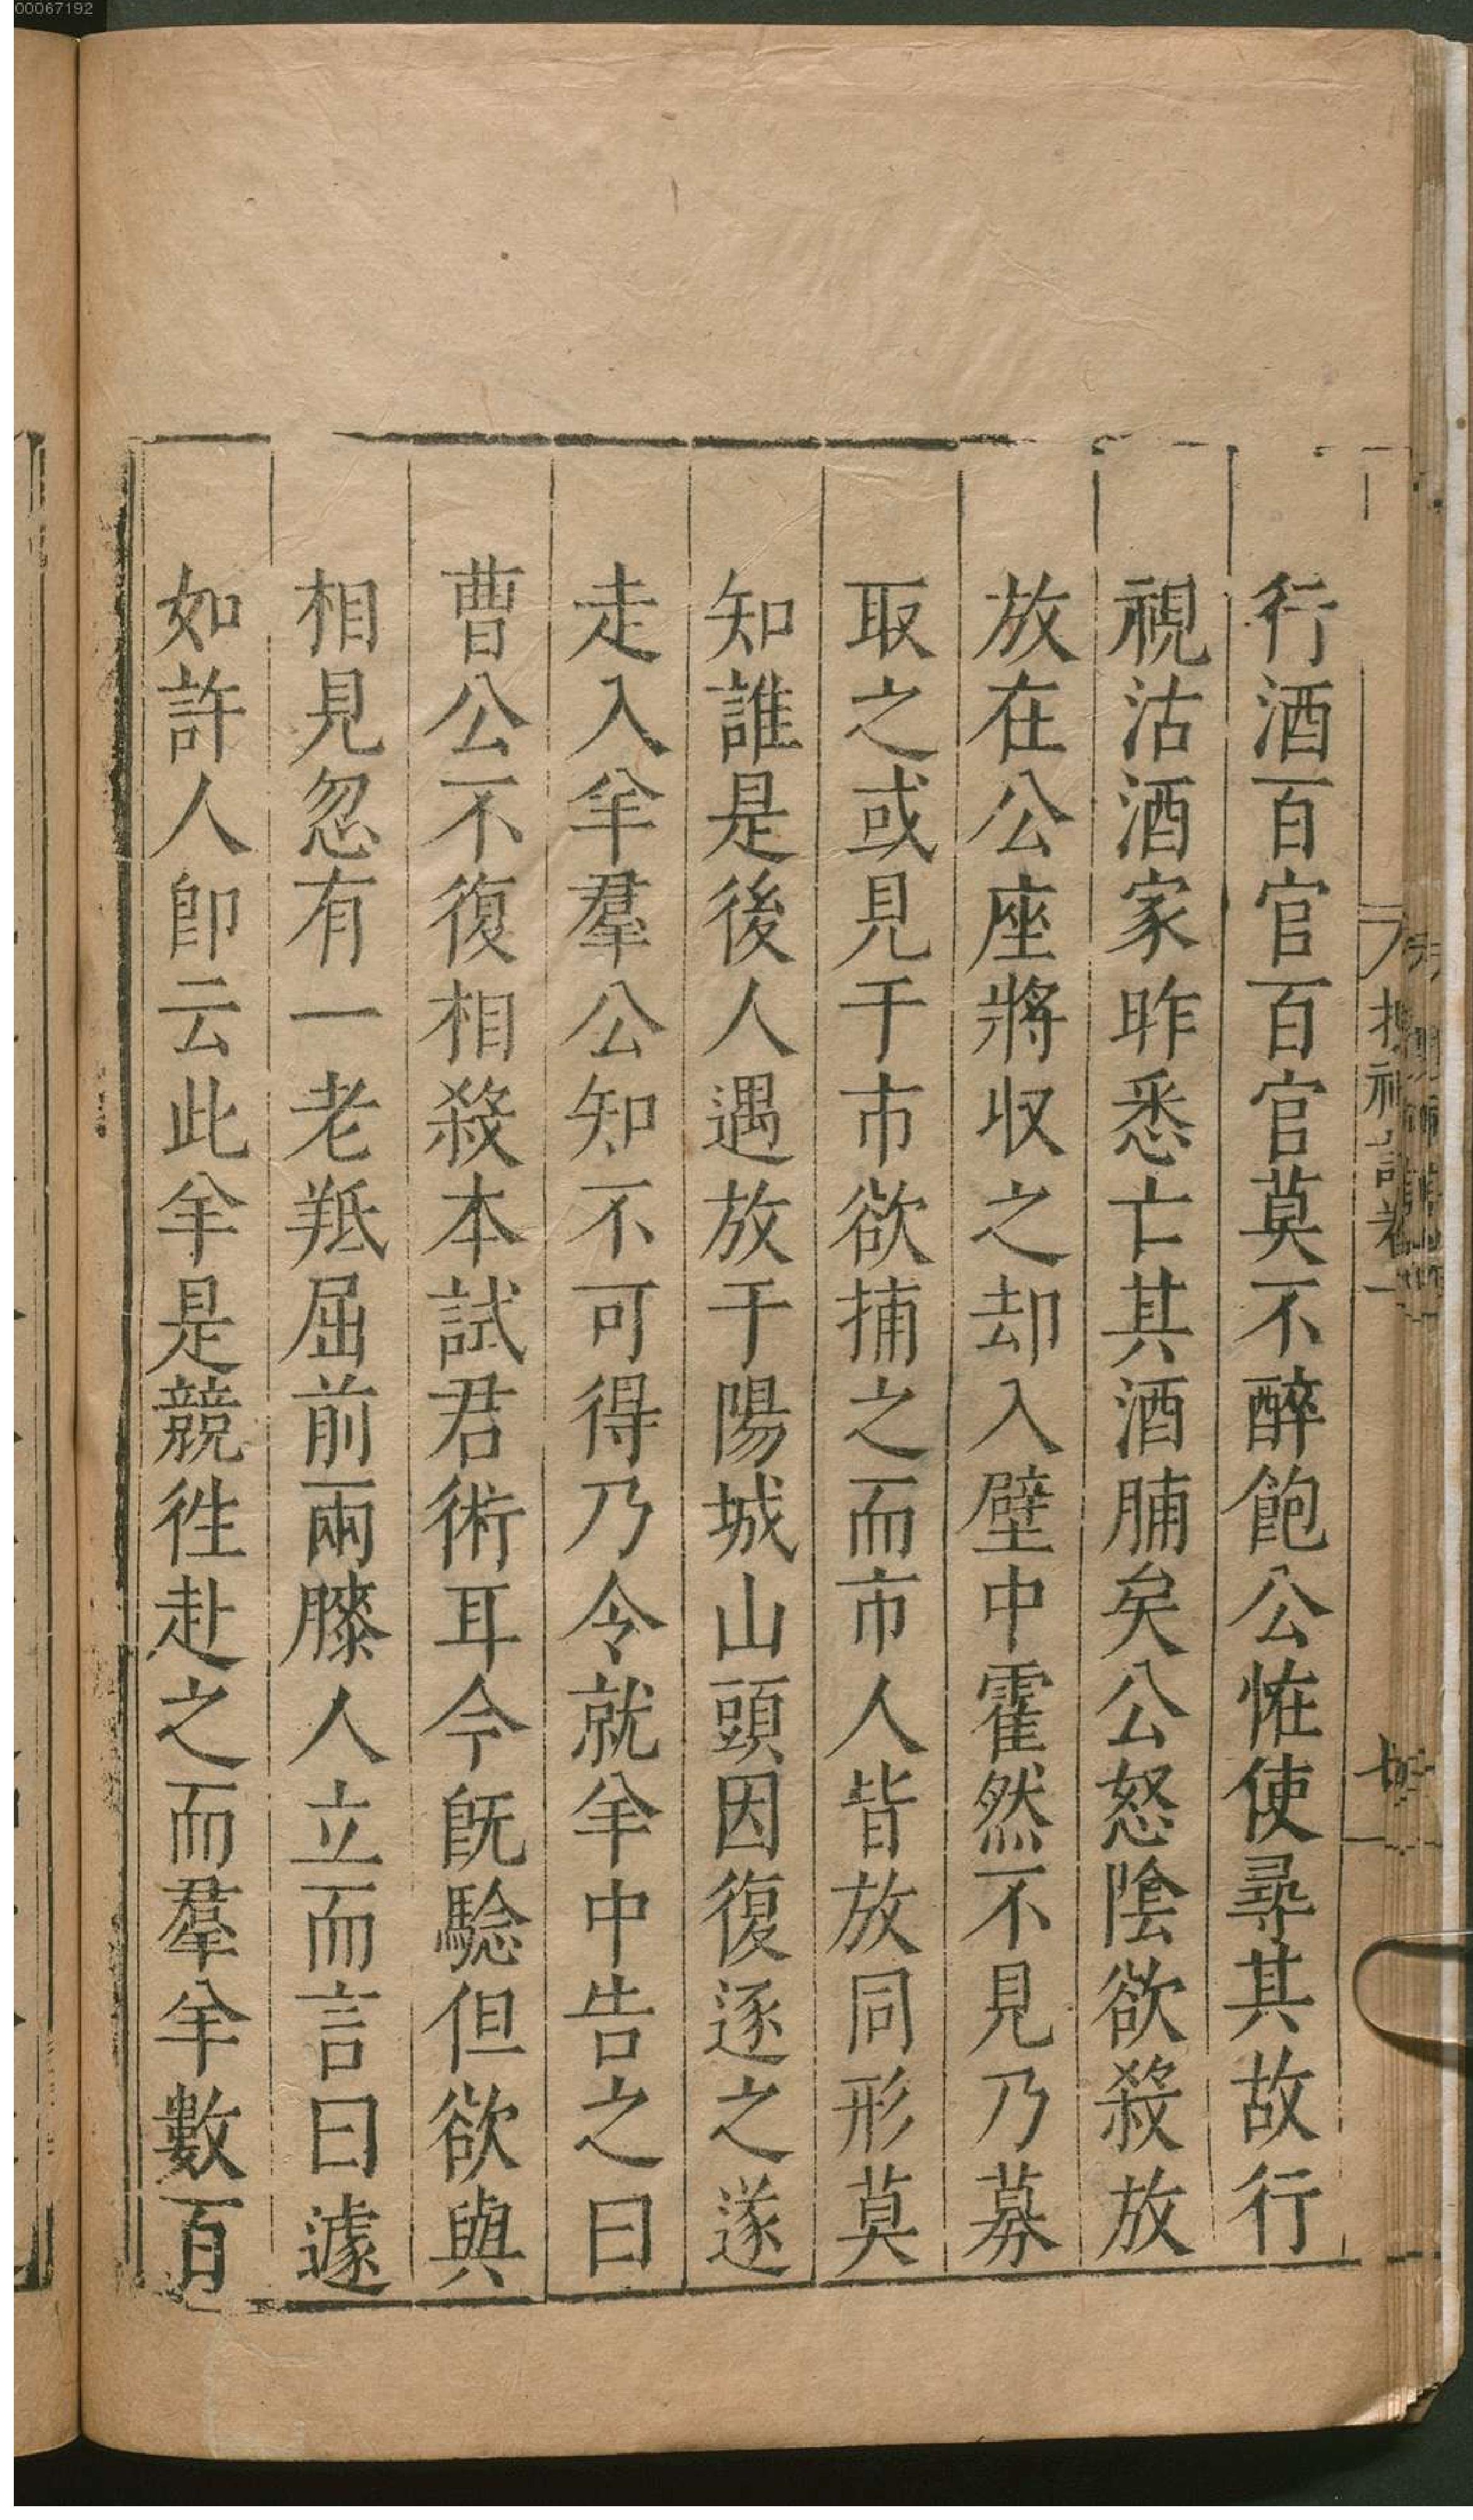 00067192
行酒百官百官莫不醉飽公恠使尋其故行
視沽酒家昨悉亡其酒脯矣公怒陰欲殺放
放在公座將収之却入壁中霍然不見乃募
取之或見于市欲捕之而市人皆放同形莫
知誰是後人遇放于陽城山頭因復逐之遂
走入羊羣公知不可得乃令就羊中告之曰
曹公不復相殺本試君術耳今旣驗但欲與
相見忽有一老羝屈前兩膝人立而言曰遽
如許人卽云此羊是競徃赴之而羣羊數百